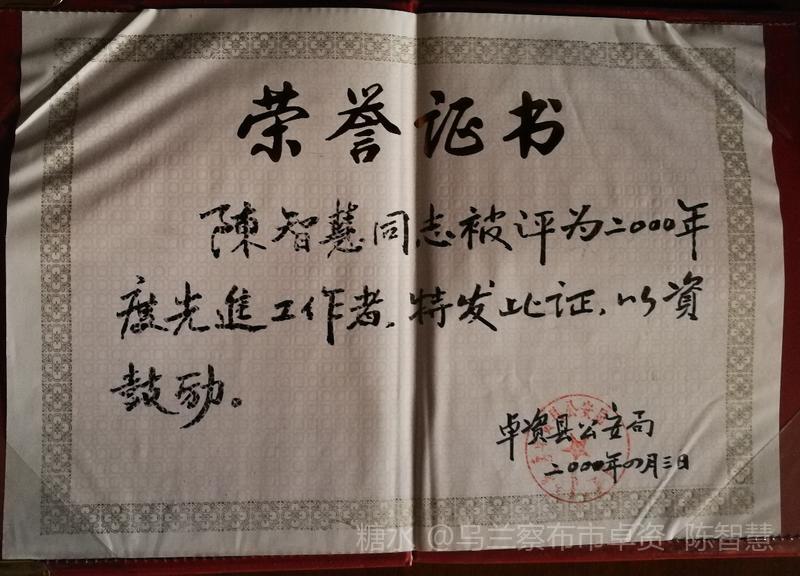 荣誉证书
陳智慧同志被评为二000年
度先進工作者,特发此证,以資
鼓励。
卓资县公安局
二000年四月三日
糖水 @乌兰察布市卓资 陈智慧